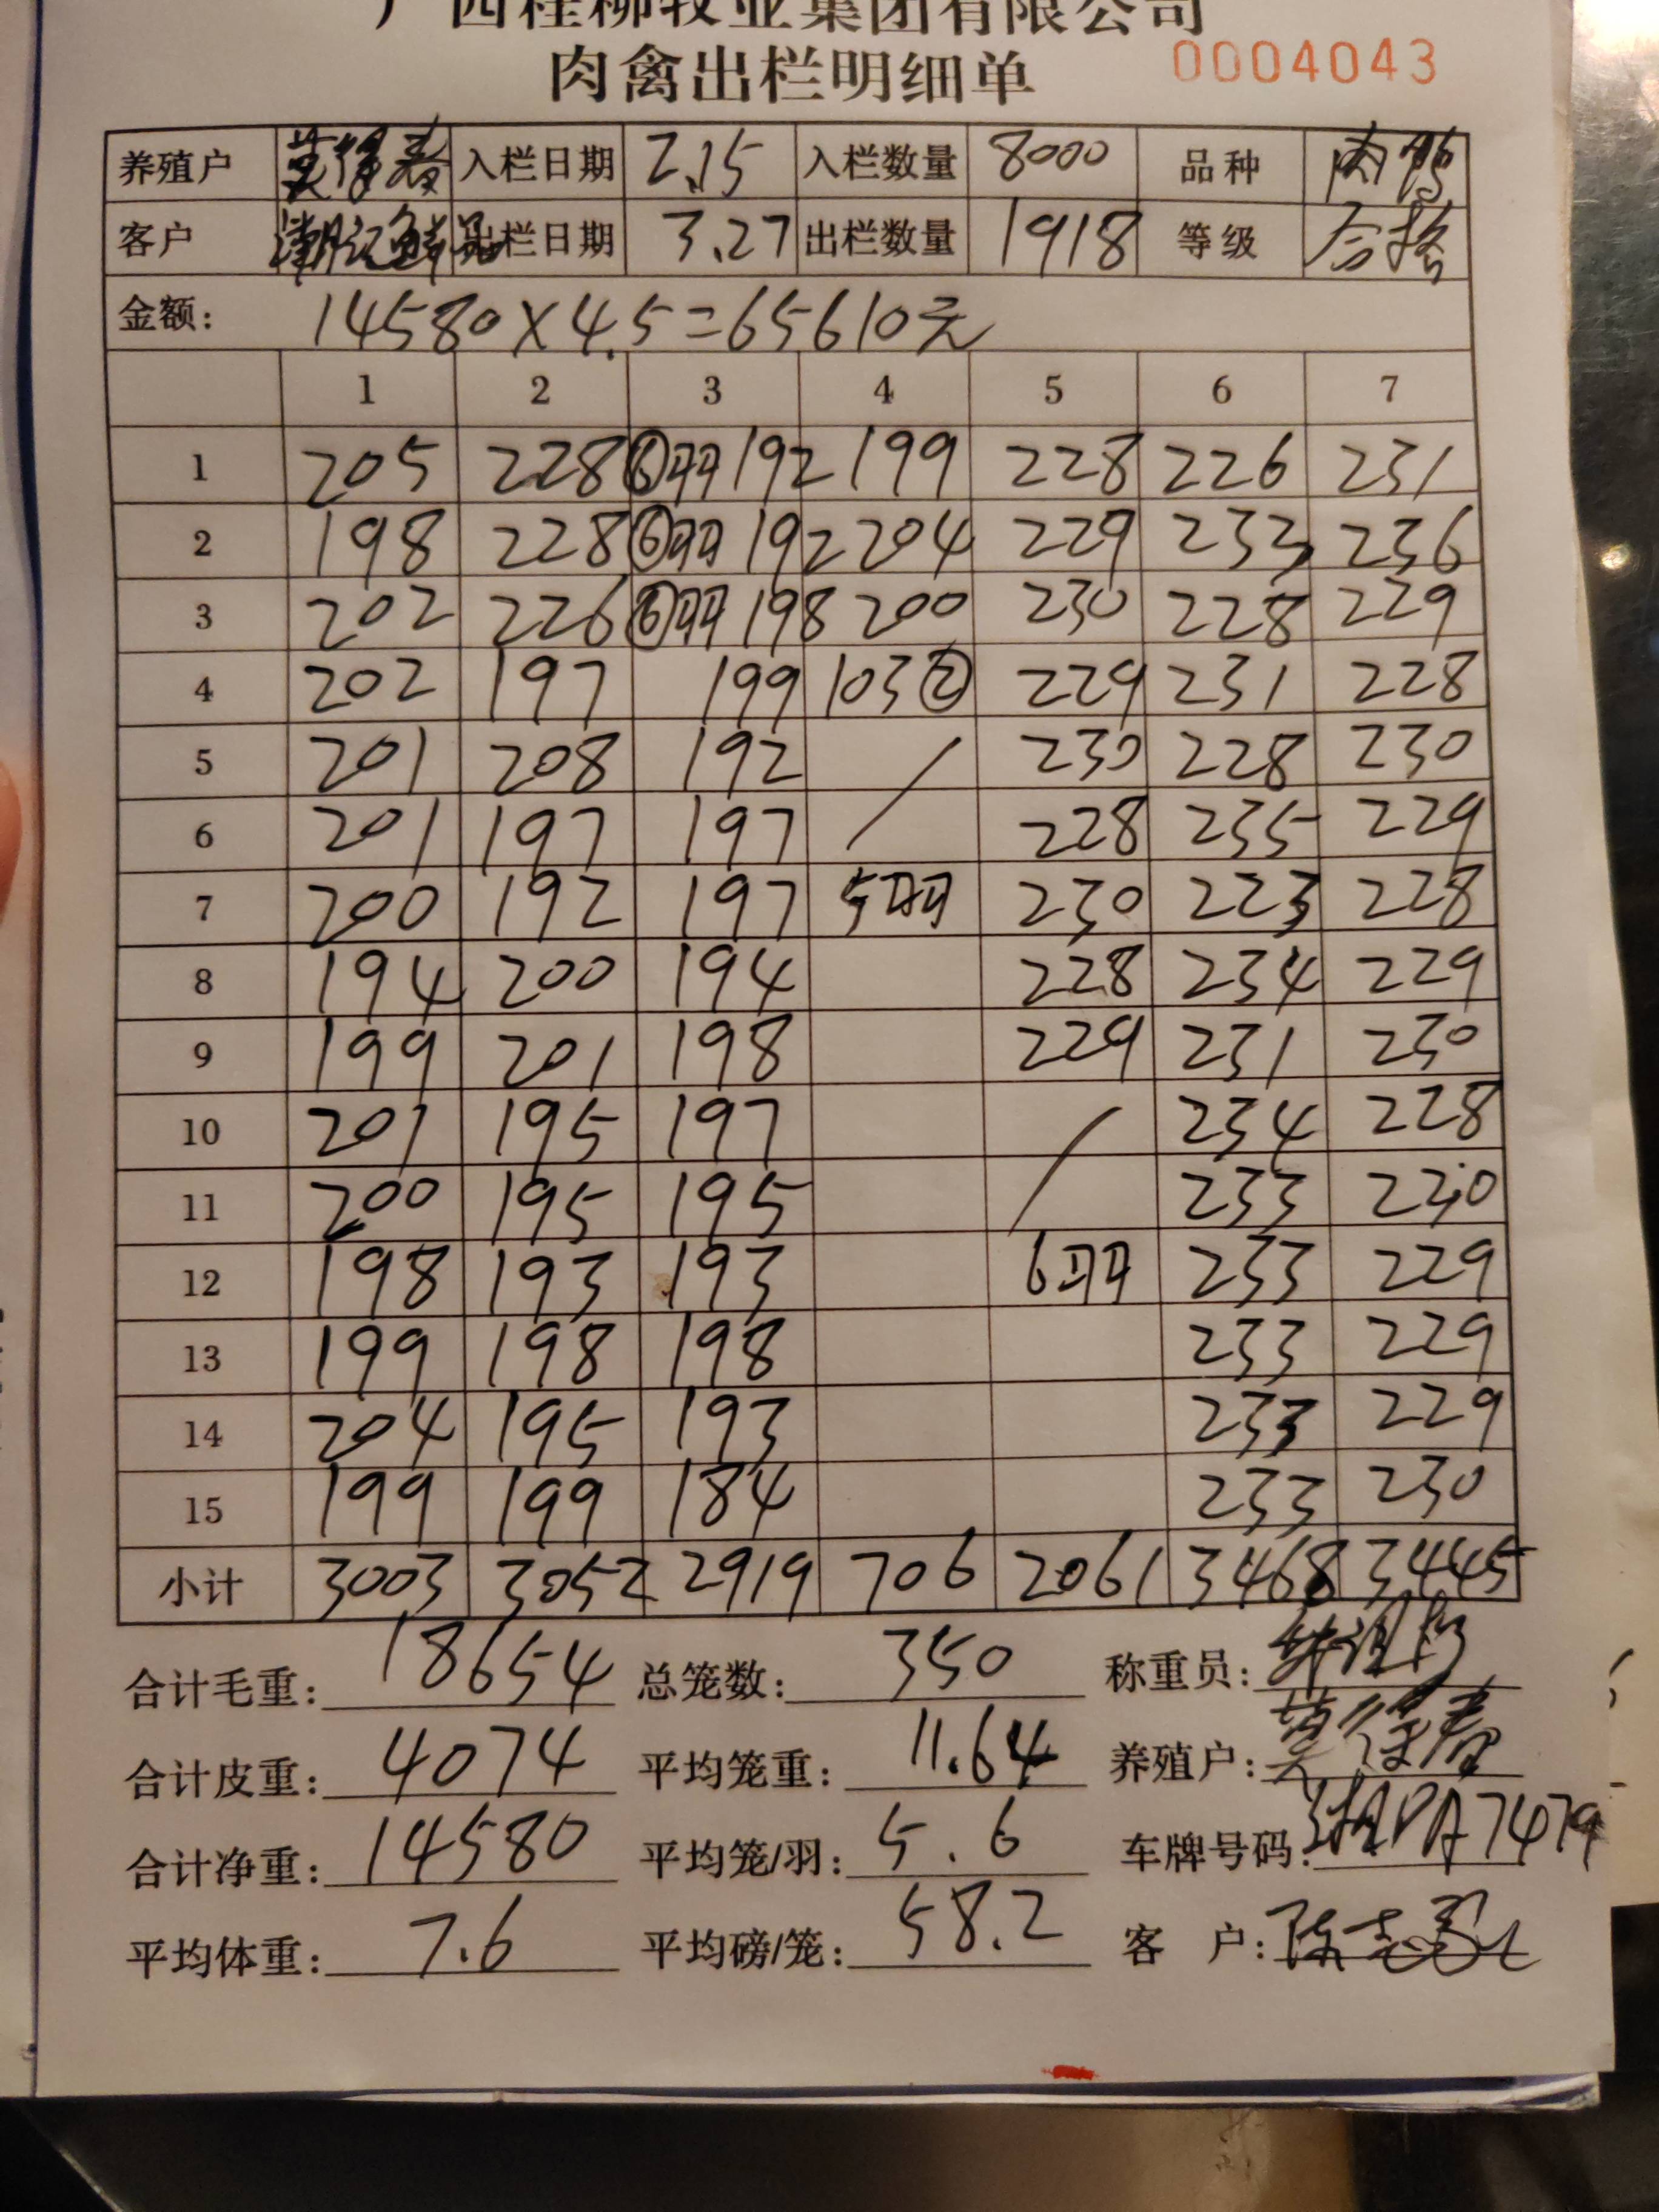 广西桂柳牧业集团有限公司
肉禽出栏明细单 0004043
养殖户 入栏日期 2.15 入栏数量 8000 品种 肉鸭
客户 出栏日期 3.27 出栏数量 1918 等级 合格
金额: 14580×4.5=65610元
1 2 3 4 5 6 7
1 205 228 ⑥羽 192 199 228 226 231
2 198 228 ⑥羽 192 204 229 233 236
3 202 226 ⑥羽 198 200 230 228 229
4 202 197 199 103② 229 231 228
5 201 208 192 / 230 228 230
6 201 197 197 228 235 229
7 200 192 197 5羽 230 223 228
8 194 200 194 228 234 229
9 199 201 198 229 231 230
10 201 195 197 / 234 228
11 200 195 195 233 230
12 198 193 193 6羽 233 229
13 199 198 198 233 229
14 204 195 193 233 229
15 199 199 184 233 230
小计 3003 3052 2919 706 2061 3468 3445
合计毛重: 18654 总笼数: 350 称重员:
合计皮重: 4074 平均笼重: 11.64 养殖户:
合计净重: 14580 平均笼/羽: 5.6 车牌号码: 7479
平均体重: 7.6 平均磅/笼: 58.2 客 户: